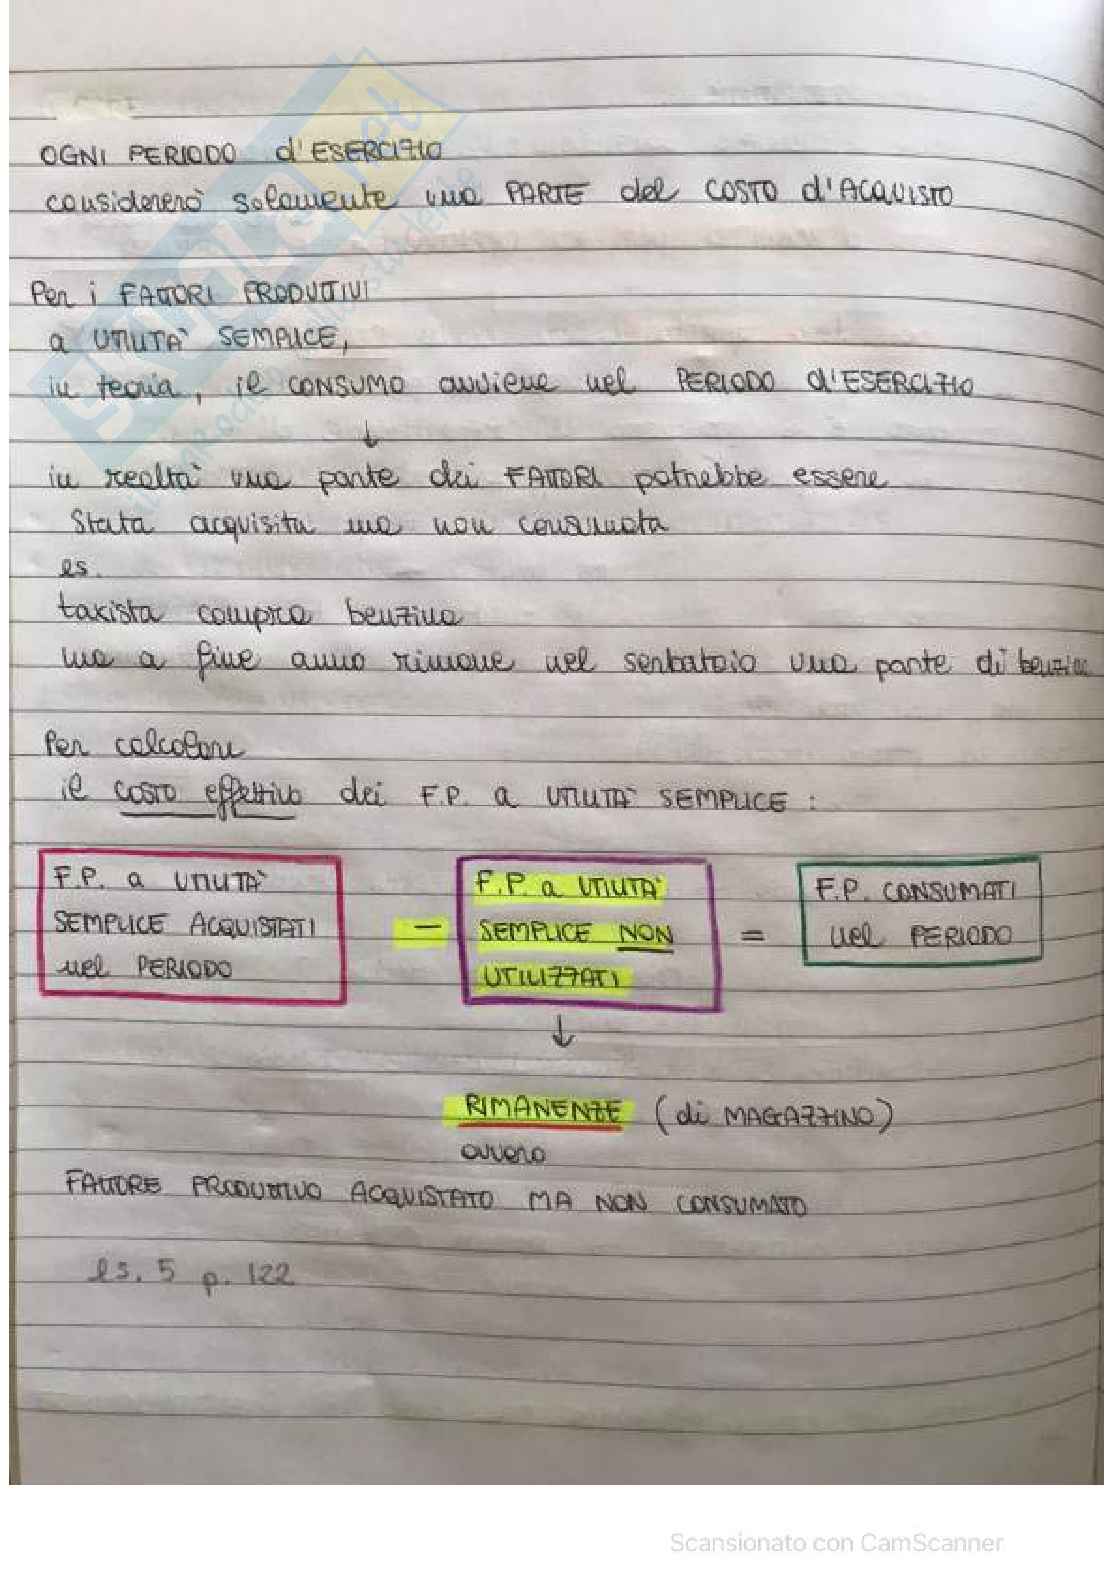 OGNI PERIODO d'ESERCIZIO
considererò solamente una PARTE del COSTO d'ACQUISTO
Per i FATTORI PRODUTTIVI
a UTILITA' SEMPLICE,
in teoria, il CONSUMO avviene nel PERIODO d'ESERCIZIO
↓
in realtà una parte dei FATTORI potrebbe essere
stata acquisita ma non consumata
es.
taxista compra benzina
ma a fine anno rimane nel serbatoio una parte di benzina
Per calcolare
il costo effettivo dei F.P. a UTILITA' SEMPLICE :
F.P. a UTILITA'
SEMPLICE ACQUISTATI
nel PERIODO
-
F.P. a UTILITA'
SEMPLICE NON
UTILIZZATI
=
F.P. CONSUMATI
nel PERIODO
↓
RIMANENZE (di MAGAZZINO)
ovvero
FATTORE PRODUTTIVO ACQUISTATO MA NON CONSUMATO
es. 5 p. 122
Scansionato con CamScanner